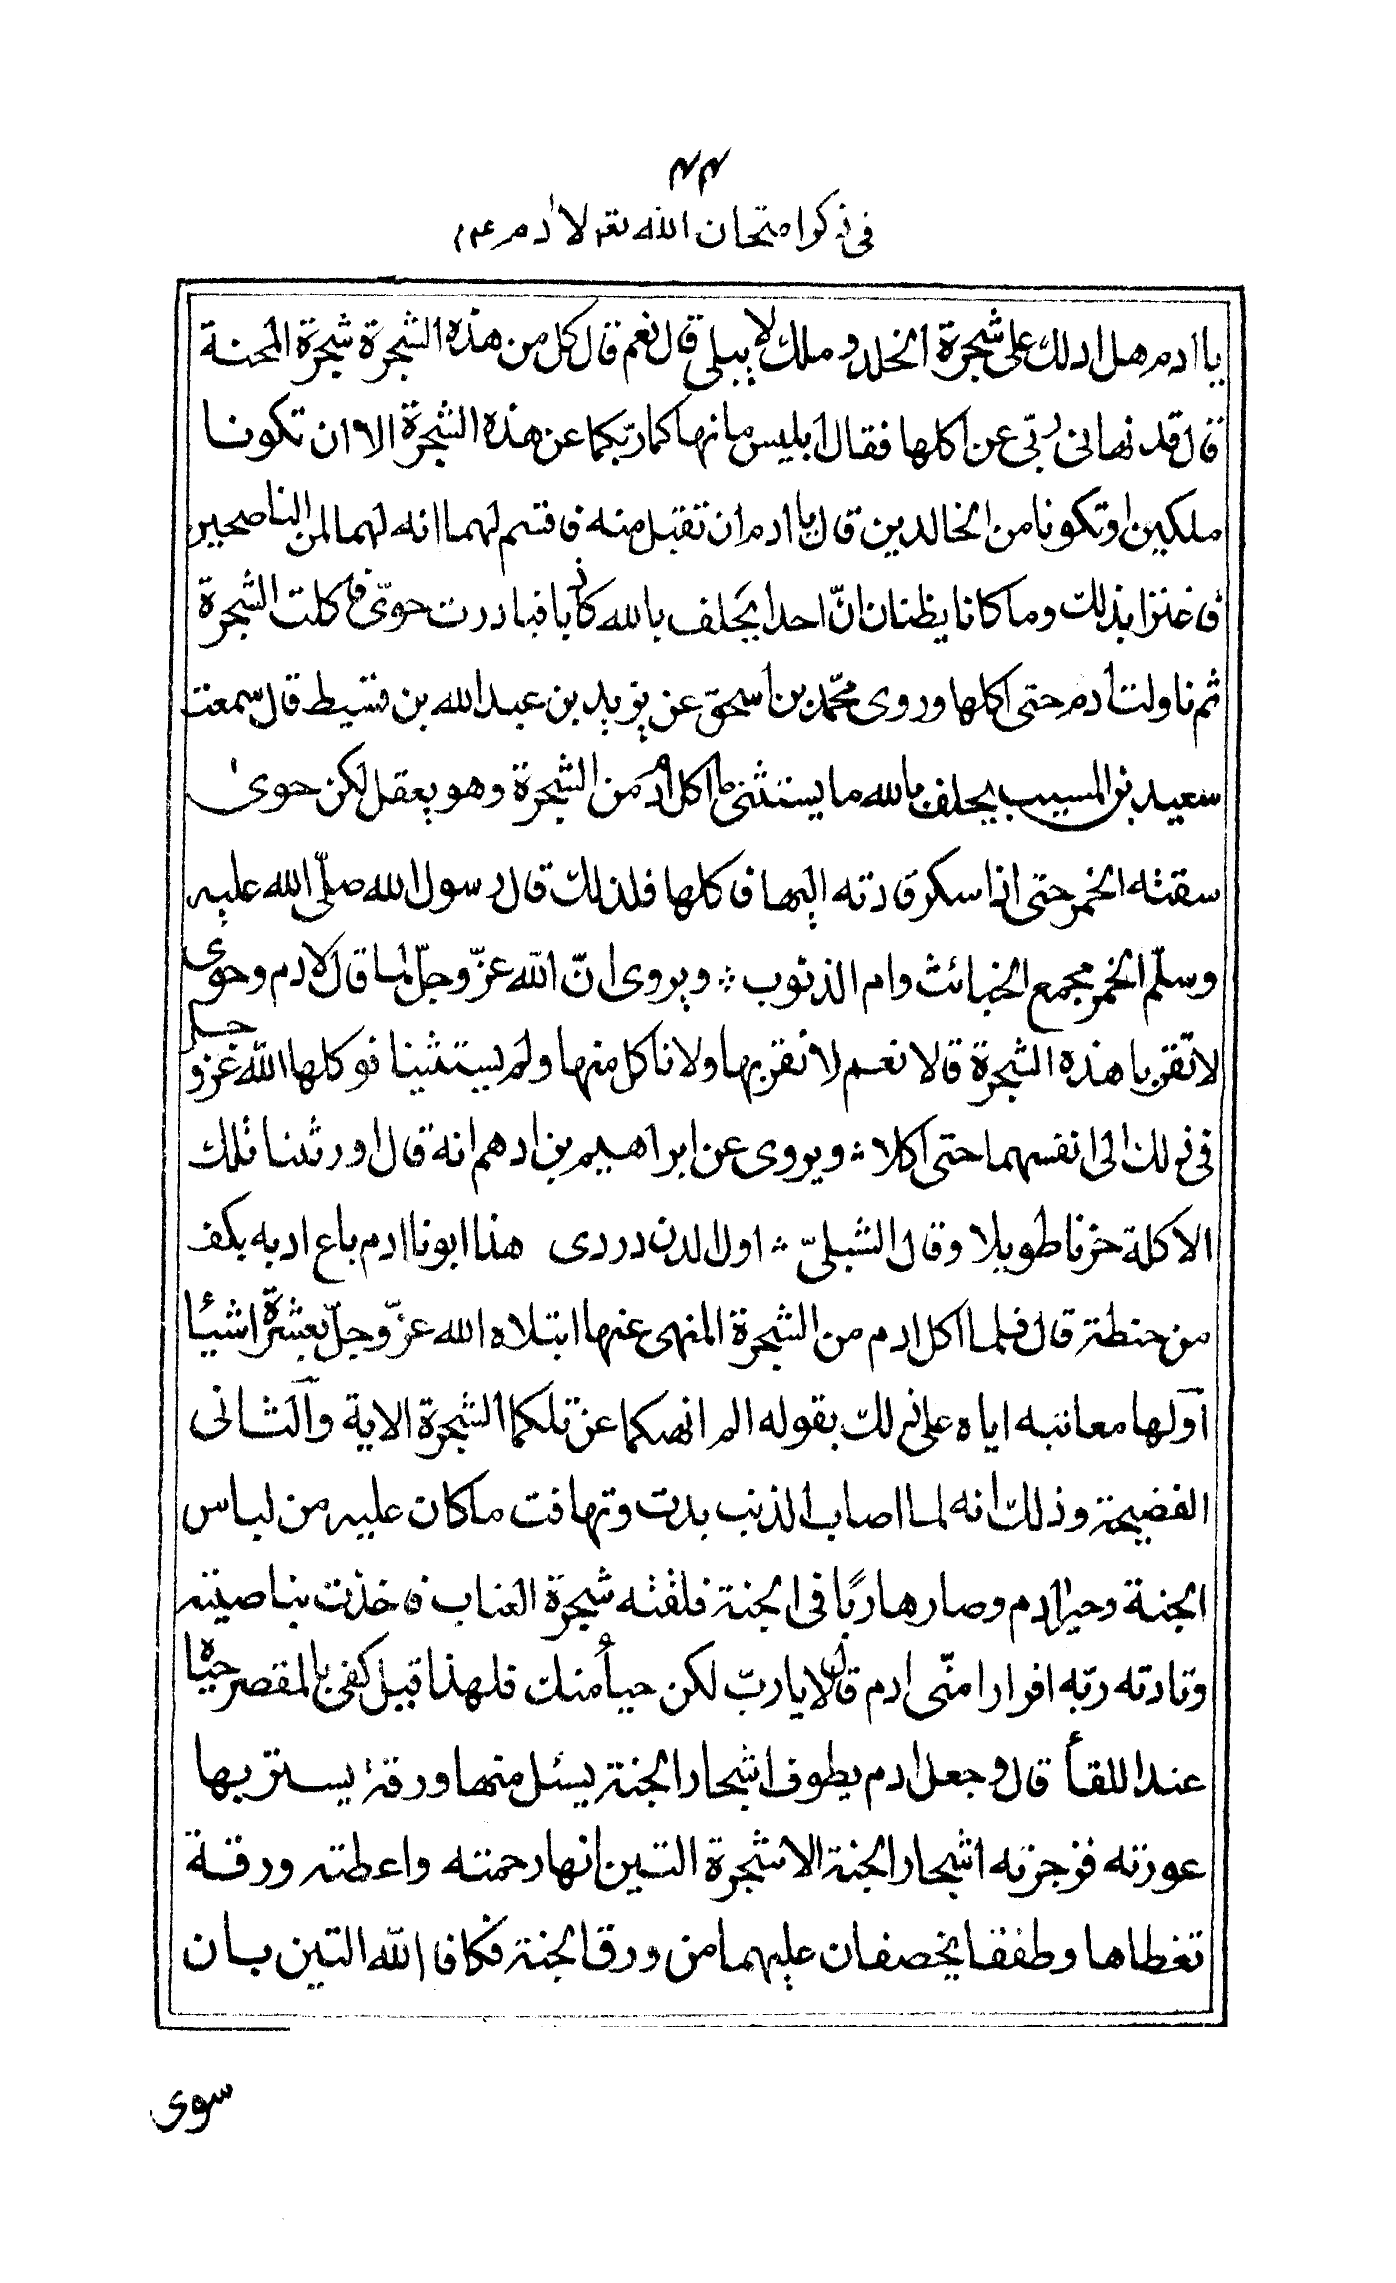 ٣٣
في ذكر امتحان الله تعم لادم ٤م
يا ادم هل ادلك على شجرة الخلد و ملك لا يبلى قال نعم قال كل من هذه الشجرة شجرة المحنة
قال قد نهانى ربّى عن اكلها فقال ابليس ما نهاكما ربّكما عن هذه الشجرة الا ان تكونا
ملكين او تكونا من الخالدين قال يا ادم ان تقبل منه فاقتسم لهما انه لهما لمن الناصحين
فاغترا بذلك وما كانا يظنان انّ احدا يحلف بالله كاذبا فبادرت حوّى فاكلت الشجرة
ثم ناولت ادم حتى اكلها وروى محمّد بن اسحق عن يزيد بن عبد الله بن قسيط قال سمعت
سعيد بن المسيب يحلف بالله ما يستثنى ما اكل ادم من الشجرة وهو يعقل لكن حوى
سقته الخمر حتى اذا سكر قادته اليها فاكلها فلذلك قال رسول الله صلّى الله عليه
وسلّم الخمر مجمع الخبائث وام الذنوب ؞ ويروى انّ الله عزّ وجلّ لما قال لادم وحوى
لا تقربا هذه الشجرة قالا نعم لا نقربها ولا ناكل منها ولم يستثنيا فوكلها الله عزو جل
فى ذلك الى انفسهما حتى اكلا ؞ ويروى عن ابراهيم بن ادهم انه قال اورثنا تلك
الاكلة حزنا طويلا وقال الشبلىّ ؞ اول الدن دردى هذا ابونا ادم باع ادبه بكف
من حنطة قال فلما اكل ادم من الشجرة المنهى عنها ابتلاه الله عزّ وجلّ بعشرة اشيئا
اولها معاتبه اياه على ذلك بقوله الم انهكما عن تلكما الشجرة الاية والثانى
الفضيحة وذلك انه لما اصاب الذنب بدت وتهافت ما كان عليه من لباس
الجنة وحير ادم وصار هاربًا فى الجنة فلقته شجرة العناب فاخذت بناصيته
ونادته ربّه افرارا منّى ادم قال لا يا ربّ لكن حيأ منك فلهذا قيل كفى بالمقصر حياة
عند اللقأ قال وجعل ادم يطوف اشجار الجنة يسئل منها ورقة يستر بها
عورته فزجرته اشجار الجنة الا شجرة التين انها رحمته واعطته ورقة
تغطاها وطفقا يخصفان عليهما من ورق الجنة فكافا الله التين بان
سوى